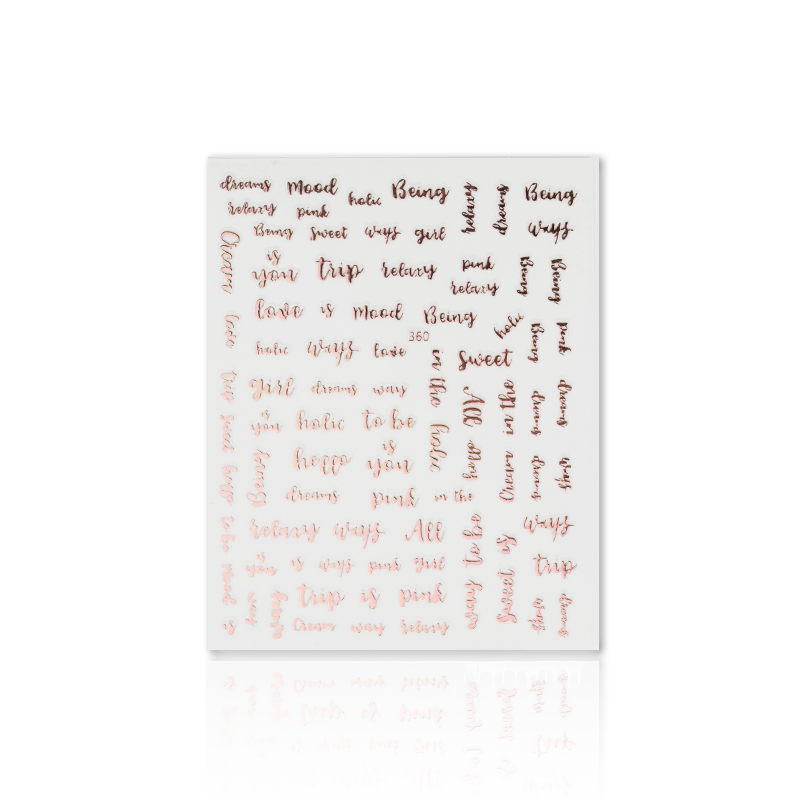 dreams mood holic Being Being
relaxy pink
Being sweet ways girl ways
relaxy
dreams
Cream
is
you trip relaxy pink
relaxy
Being
Being
love is mood Being
360
holic
Being
pink
love
holic ways love sweet
in the
holic
All
Cream in the
dreams
dreams
trip sweet
girl dreams ways
is
you holic to be
is
hello you
Being
dreams pink in the
hello
dreams
ways
to be mood is
relaxy ways All ways
is
you is ways pink girl trip
trip is pink
Cream way relaxy
ways
Being
way to be
Sweet is
dreams